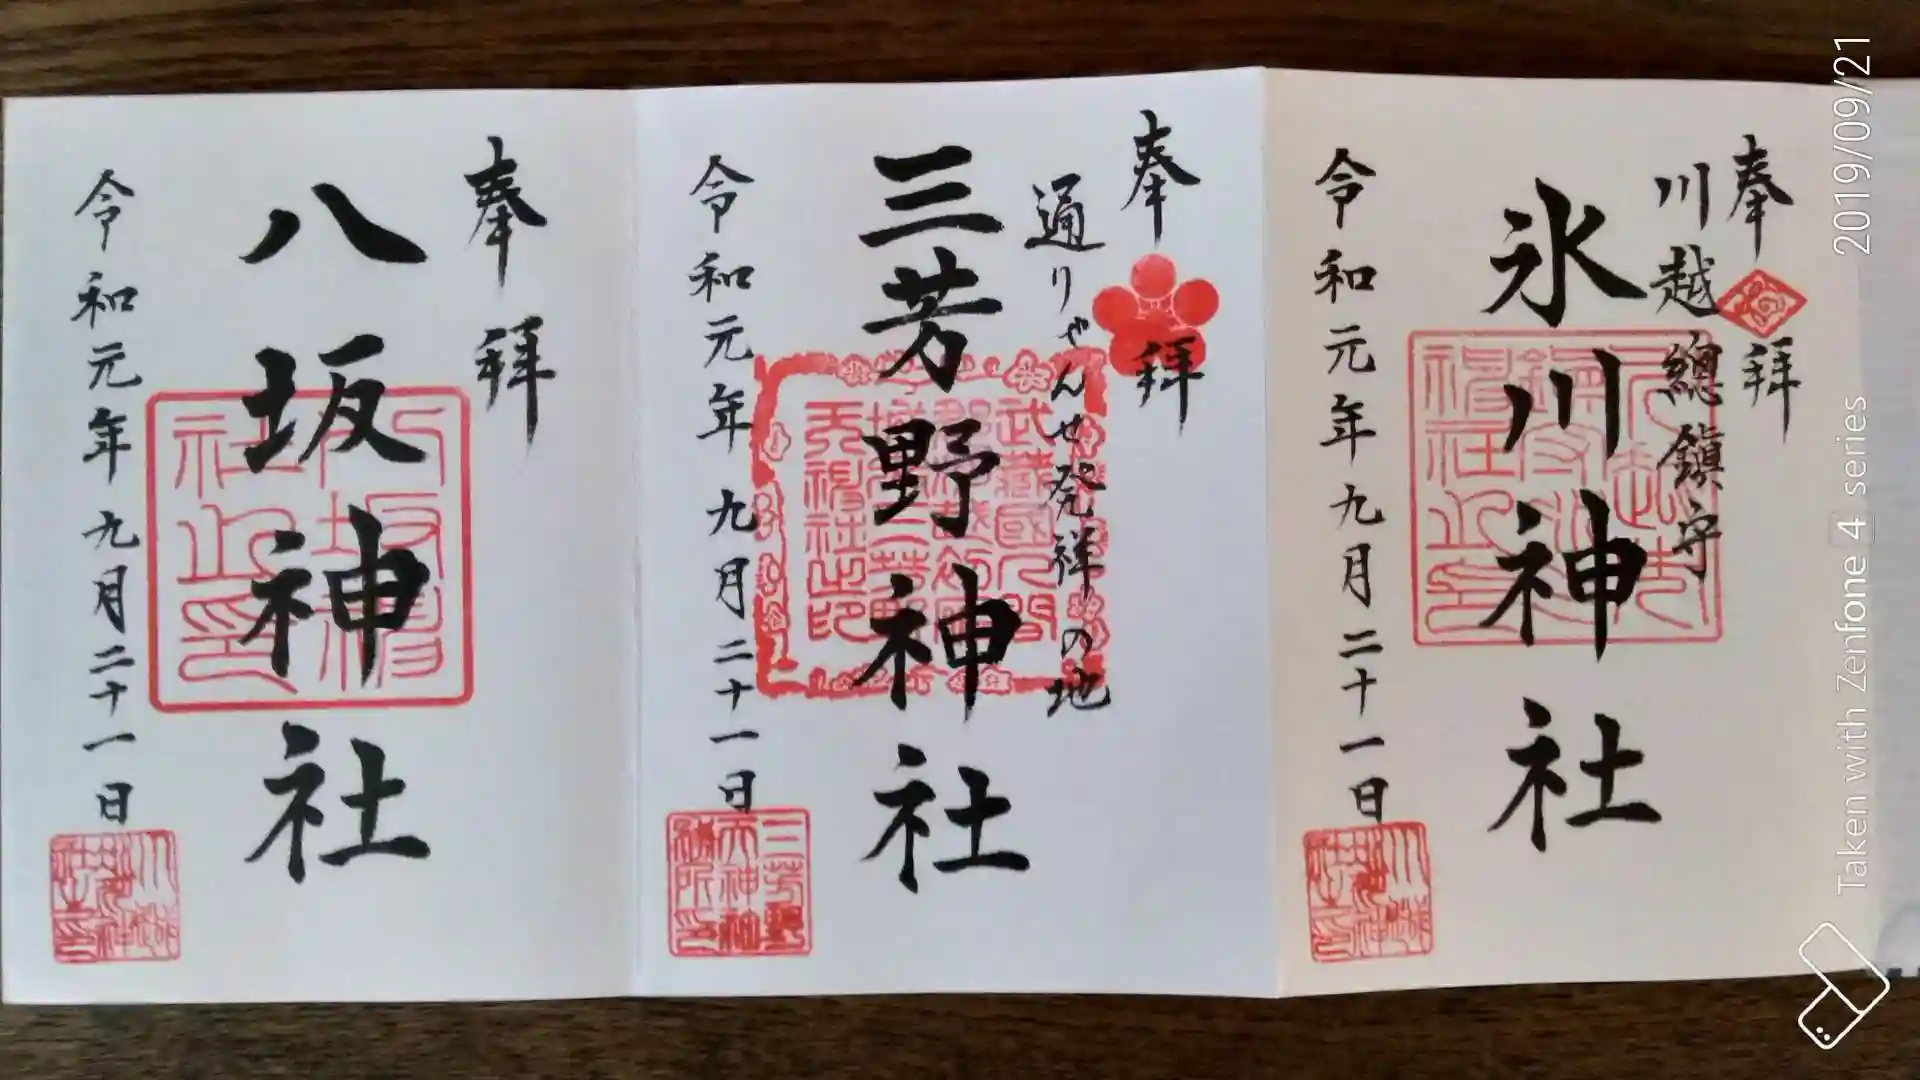 奉拝
川越總鎮守
氷川神社
令和元年九月二十一日
奉拝
通りゃんせ発祥の地
三芳野神社
令和元年九月二十一日
三芳野
天神
奉拝
八坂神社
令和元年九月二十一日
2019/09/21
Taken with Zenfone 4 series